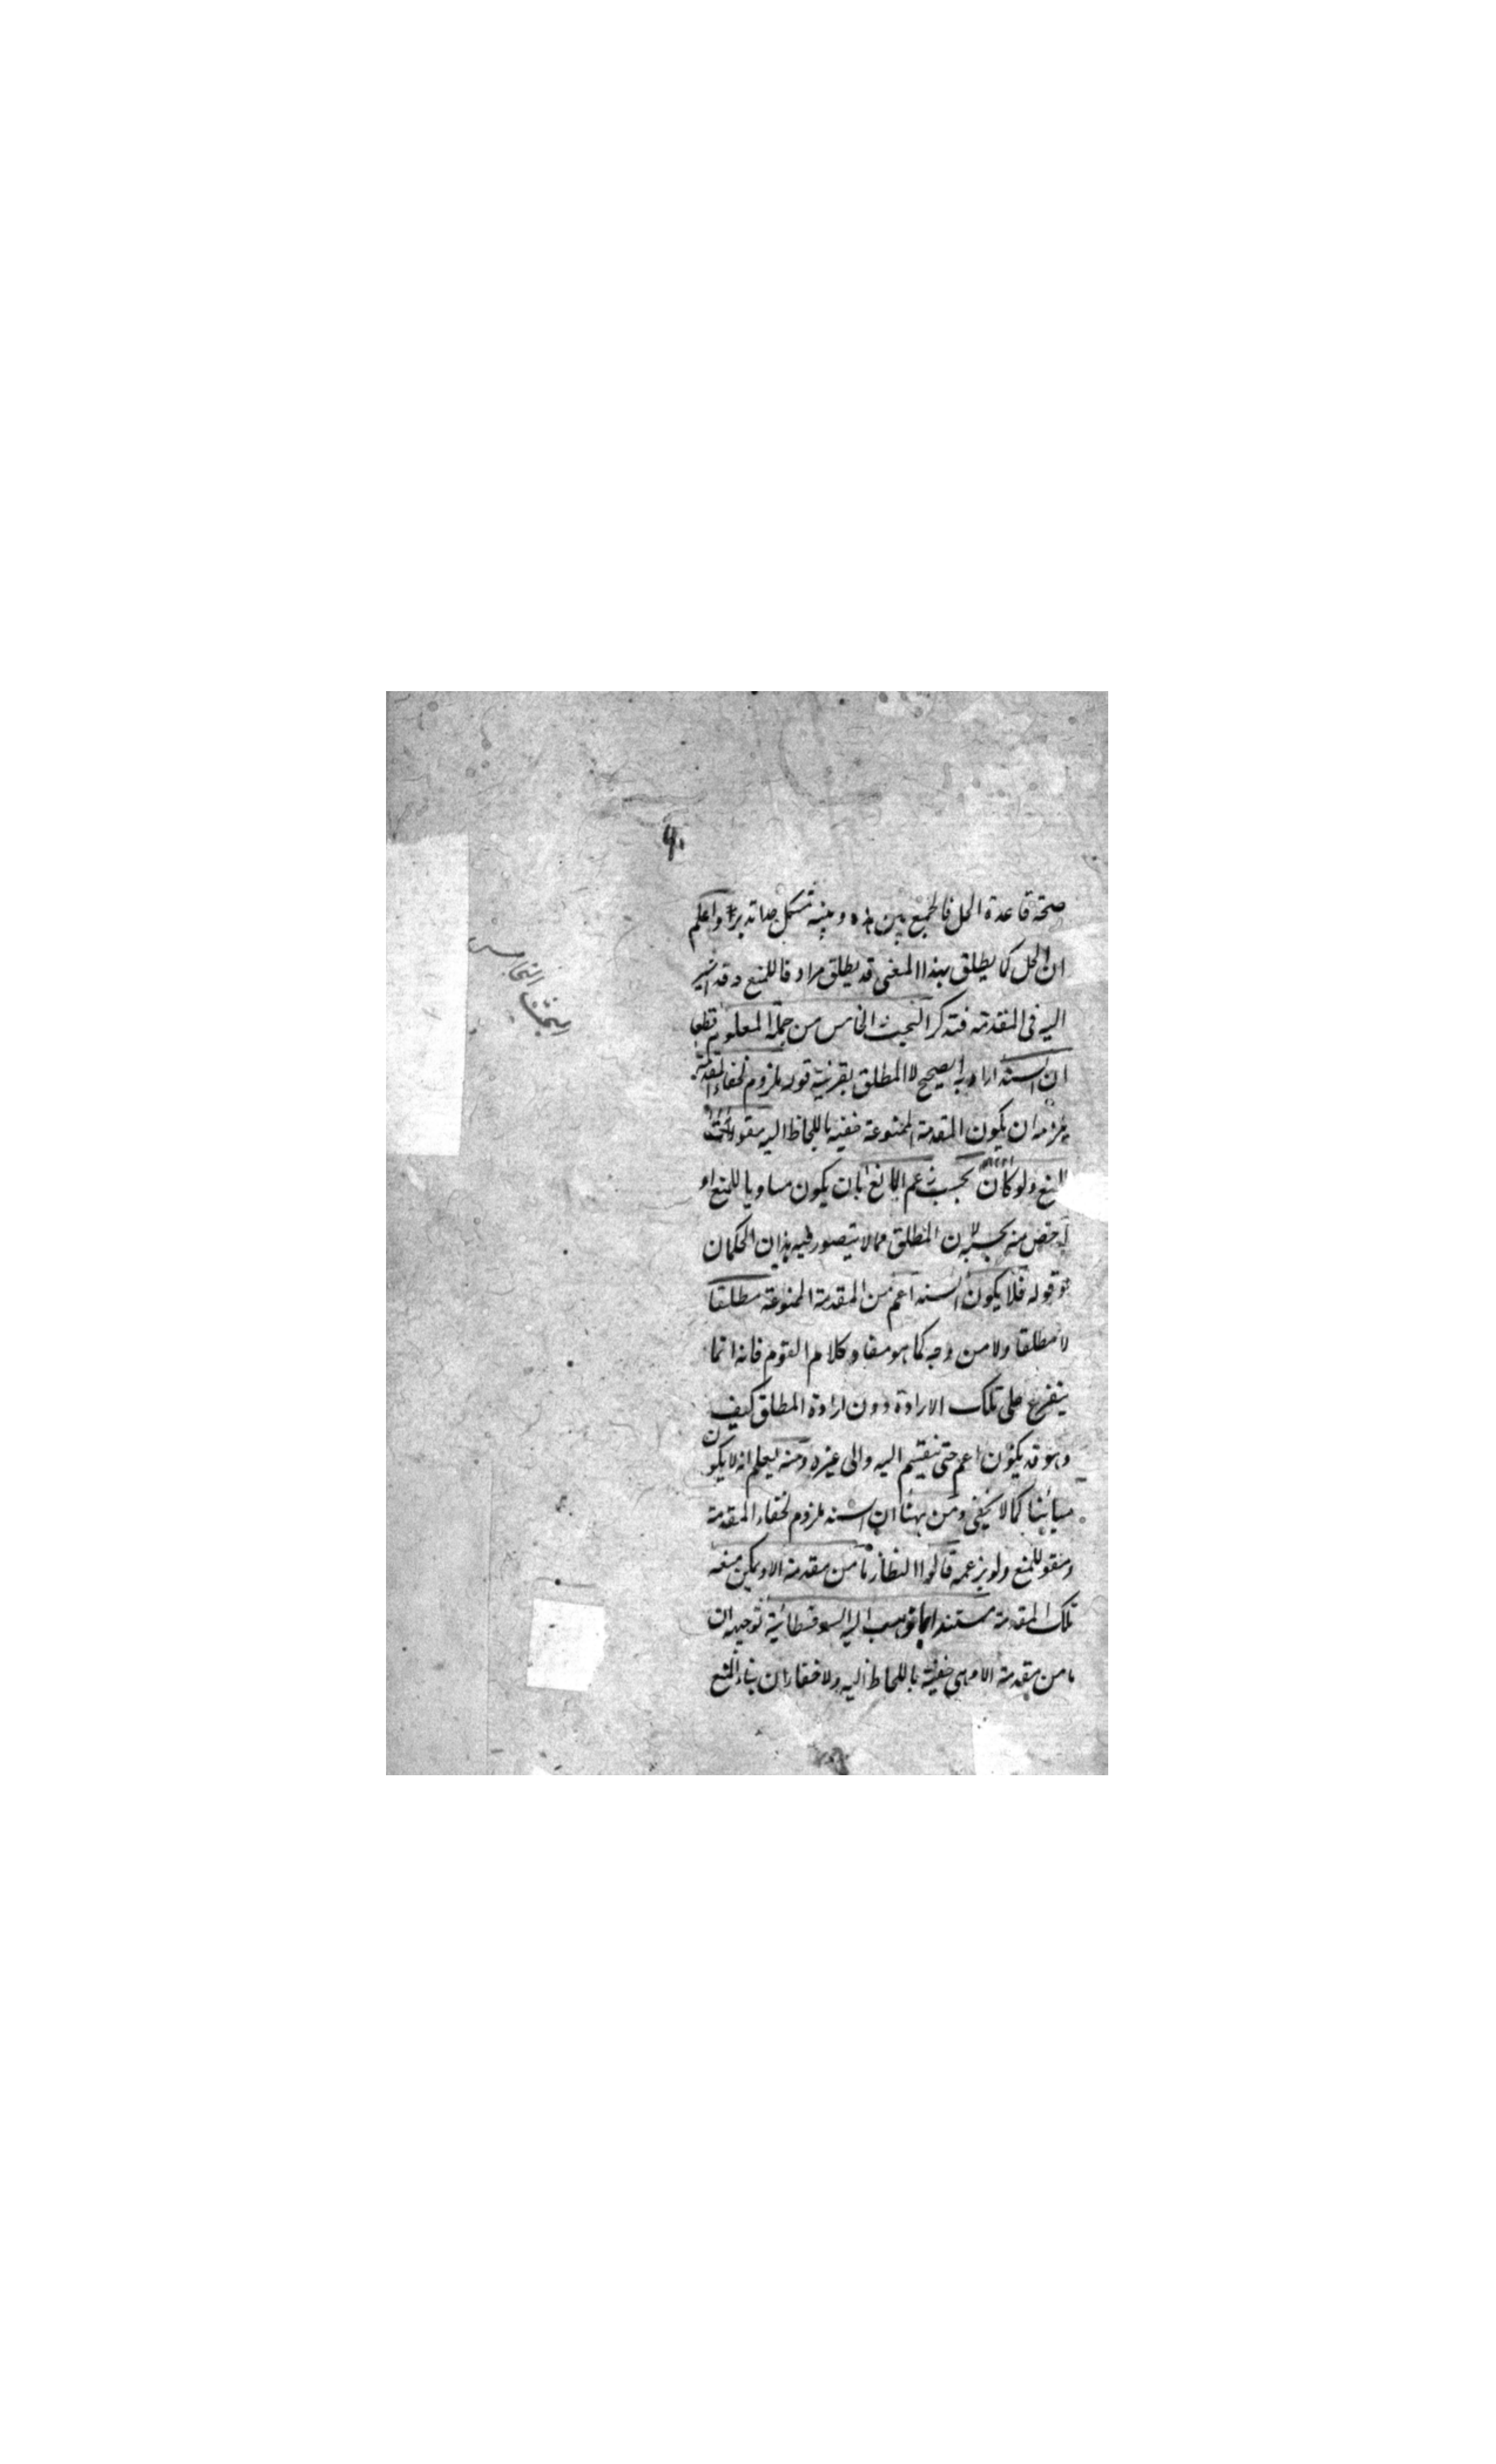 صحة قاعدة الحل فالجمع بين هذه وبينه مشكل جدا تدبر واعلم
ان الحل كما يطلق بهذا المعنى قد يطلق مرادفا للمنع وقد اشير
اليه فى المقدمة فتذكر البحث الخامس من جملة المعلوم قطعا
ان السند اراد به الصحيح لا المطلق بقرينة قوله ملزوم لخفاء المقدمة
يلزمه ان يكون المقدمة الممنوعة خفية باللحاظ اليه مقو
للمنع ولو كان بحسب زعم المانع بان يكون مساويا للمنع او
اخص منه المطلق مما لا يتصور فيه هذان الحكمان
وقوله فلا يكون السند اعم من المقدمة الممنوعة مطلقا
لا مطلقا ولا من وجه كما هو مفاد كلام القوم فانه انما
يتفرع على تلك الارادة دون ارادة المطلق كيف
وهو قد يكون اعم حتى ينقسم اليه والى غيره ومنه يعلم انه لا يكون
مبائنا كما لا يخفى ومن ههنا ان السند ملزوم لخفاء المقدمة
ومقو للمنع ولو بزعمه قالوا النظار ما من مقدمة الا ويمكن منعه
تلك المقدمة مستندا بما ذهب اليه السوفسطائية توجيهه ان
ما من مقدمة الا وهى خفية باللحاظ اليه ولا خفاء ان بناء المنع
البحث الخامس